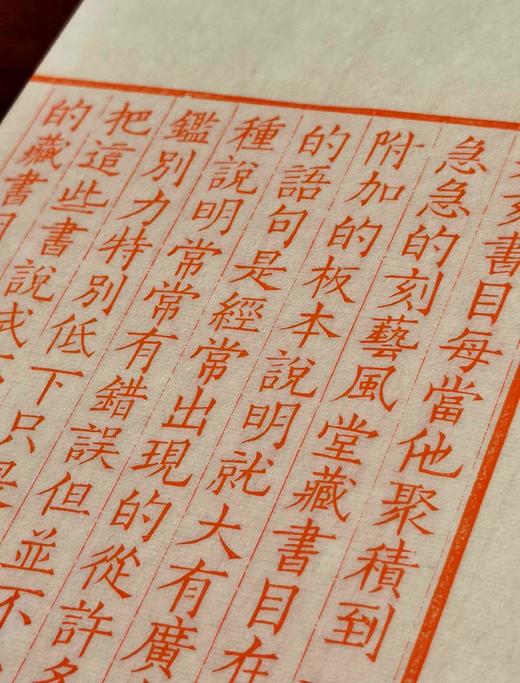 刻書目每當他聚積到
急急的刻藝風堂藏書目在
附加的板本說明就大有廣
的語句是經常出現的從許多
種說明常常有錯誤但並不
鑑別力特別低下只是
把這些書說成
的藏書目